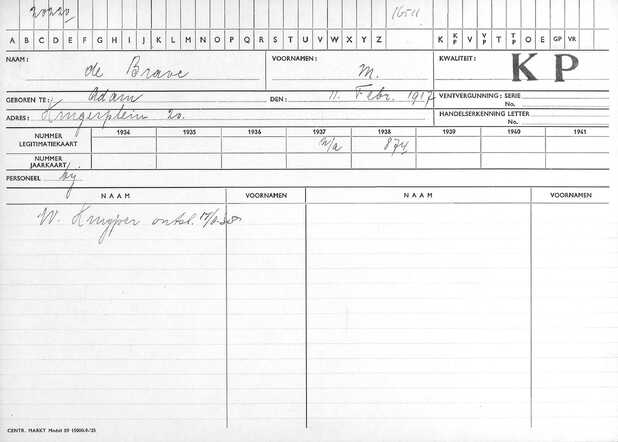 20220 16511
A B C D E F G H I J K L M N O P Q R S T U V W X Y Z K K/P V V/P T T/P O E GP VR
NAAM: de Brave VOORNAMEN: M. KWALITEIT: KP
GEBOREN TE: Adam DEN: 11 Febr. 1917 VENTVERGUNNING: SERIE
No.
ADRES: 20. HANDELSERKENNING LETTER
No.
NUMMER LEGITIMATIEKAART 1934 1935 1936 1937 1938 1939 1940 1941
n/a 874
NUMMER JAARKAART
PERSONEEL bij
NAAM VOORNAMEN NAAM VOORNAMEN
W. ontsl.
CENTR. MARKT Model 89 15000/9/35